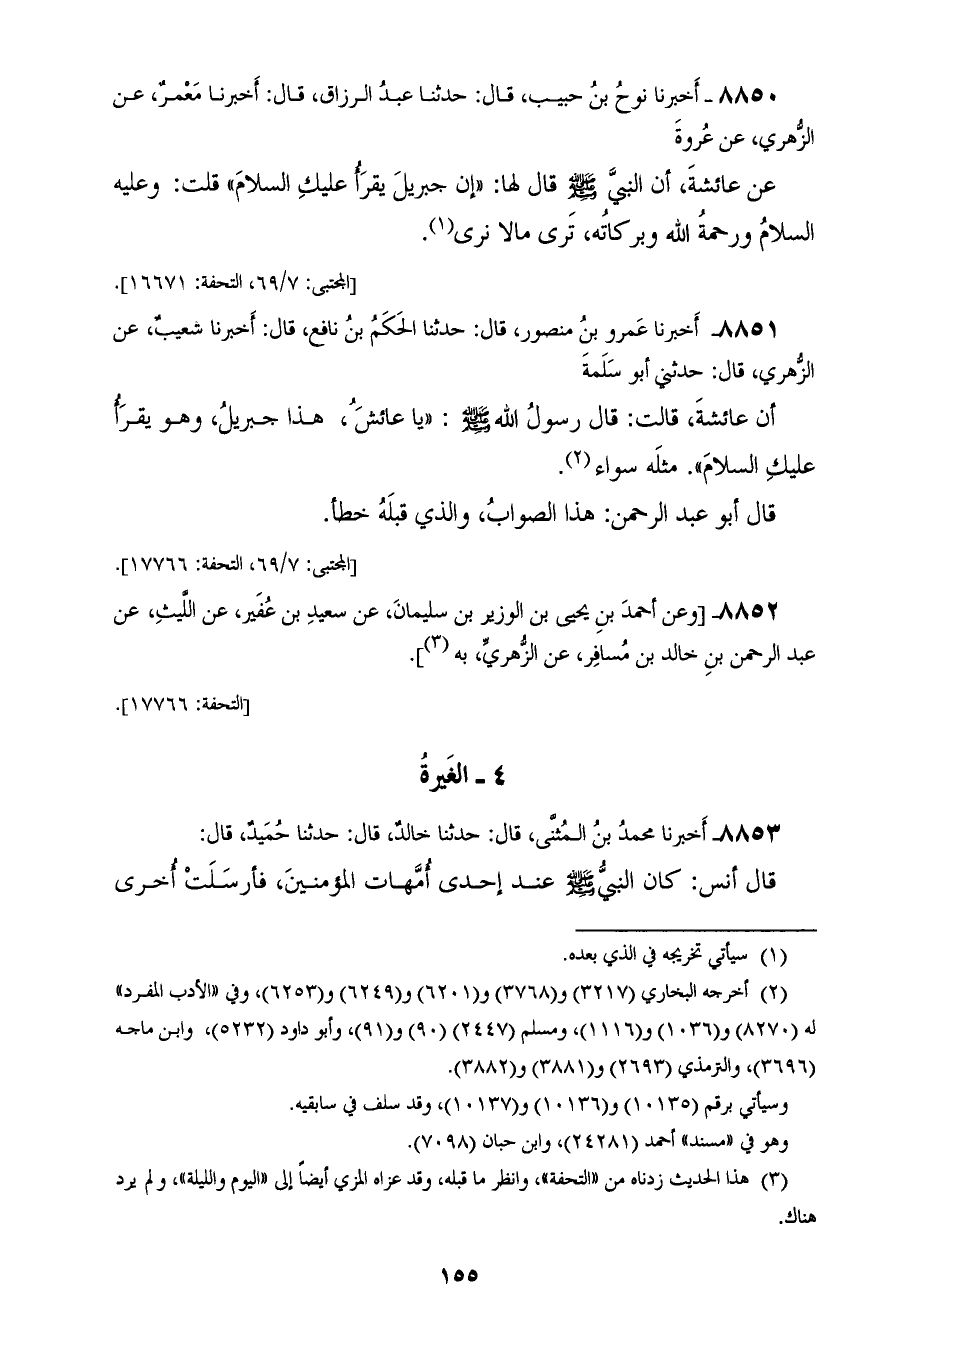 ٨٨٥٠ ـ أَخبرنا نوحُ بنُ حبيب، قال: حدثنا عبدُ الرزاق، قال: أَخبرنا مَعْمرٌ، عن
الزُّهري، عن عُروةَ
عن عائشةَ، أن النبيَّ ﷺ قال لها: «إن جبريلَ يقرَأُ عليكِ السلامَ» قلت: وعليه
السلامُ ورحمةُ الله وبركاتُه، تَرى مالا نرى(١).
[المجتبى: ٦٩/٧، التحفة: ١٦٦٧١].
٨٨٥١ـ أَخبرنا عَمرو بنُ منصور، قال: حدثنا الحَكَمُ بنُ نافع، قال: أَخبرنا شعيبٌ، عن
الزُّهري، قال: حدثني أبو سَلَمةَ
أن عائشةَ، قالت: قال رسولُ الله ﷺ : «يا عائشَُ، هذا جبريلُ، وهو يقرَأُ
عليكِ السلامَ». مثلَه سواء(٢).
قال أبو عبد الرحمن: هذا الصوابُ، والذي قبلَهُ خطأ.
[المجتبى: ٦٩/٧، التحفة: ١٧٧٦٦].
٨٨٥٢ـ [وعن أحمدَ بنِ يحيى بن الوزير بن سليمانَ، عن سعيدِ بن عُفَير، عن اللَّيثِ، عن
عبد الرحمن بنِ خالد بن مُسافِر، عن الزُّهريِّ، به(٣)].
[التحفة: ١٧٧٦٦].
٤ ـ الغَيرةُ
٨٨٥٣ـ أَخبرنا محمدُ بنُ المُثنَّى، قال: حدثنا خالدٌ، قال: حدثنا حُمَيدٌ، قال:
قال أنس: كان النبيُّ ﷺ عند إحدى أُمَّهات المؤمنينَ، فأرسَلَتْ أُخرى
(١) سيأتي تخريجه في الذي بعده.
(٢) أخرجه البخاري (٣٢١٧) و(٣٧٦٨) و(٦٢٠١) و(٦٢٤٩) و(٦٢٥٣)، وفي «الأدب المفرد»
له (٨٢٧٠) و(١٠٣٦) و(١١١٦)، ومسلم (٢٤٤٧) (٩٠) و(٩١)، وأبو داود (٥٢٣٢)، وابن ماجه
(٣٦٩٦)، والترمذي (٢٦٩٣) و(٣٨٨١) و(٣٨٨٢).
وسيأتي برقم (١٠١٣٥) و(١٠١٣٦) و(١٠١٣٧)، وقد سلف في سابقيه.
وهو في «مسند» أحمد (٢٤٢٨١)، وابن حبان (٧٠٩٨).
(٣) هذا الحديث زدناه من «التحفة»، وانظر ما قبله، وقد عزاه المزي أيضاً إلى «اليوم والليلة»، ولم يرد
هناك.
١٥٥